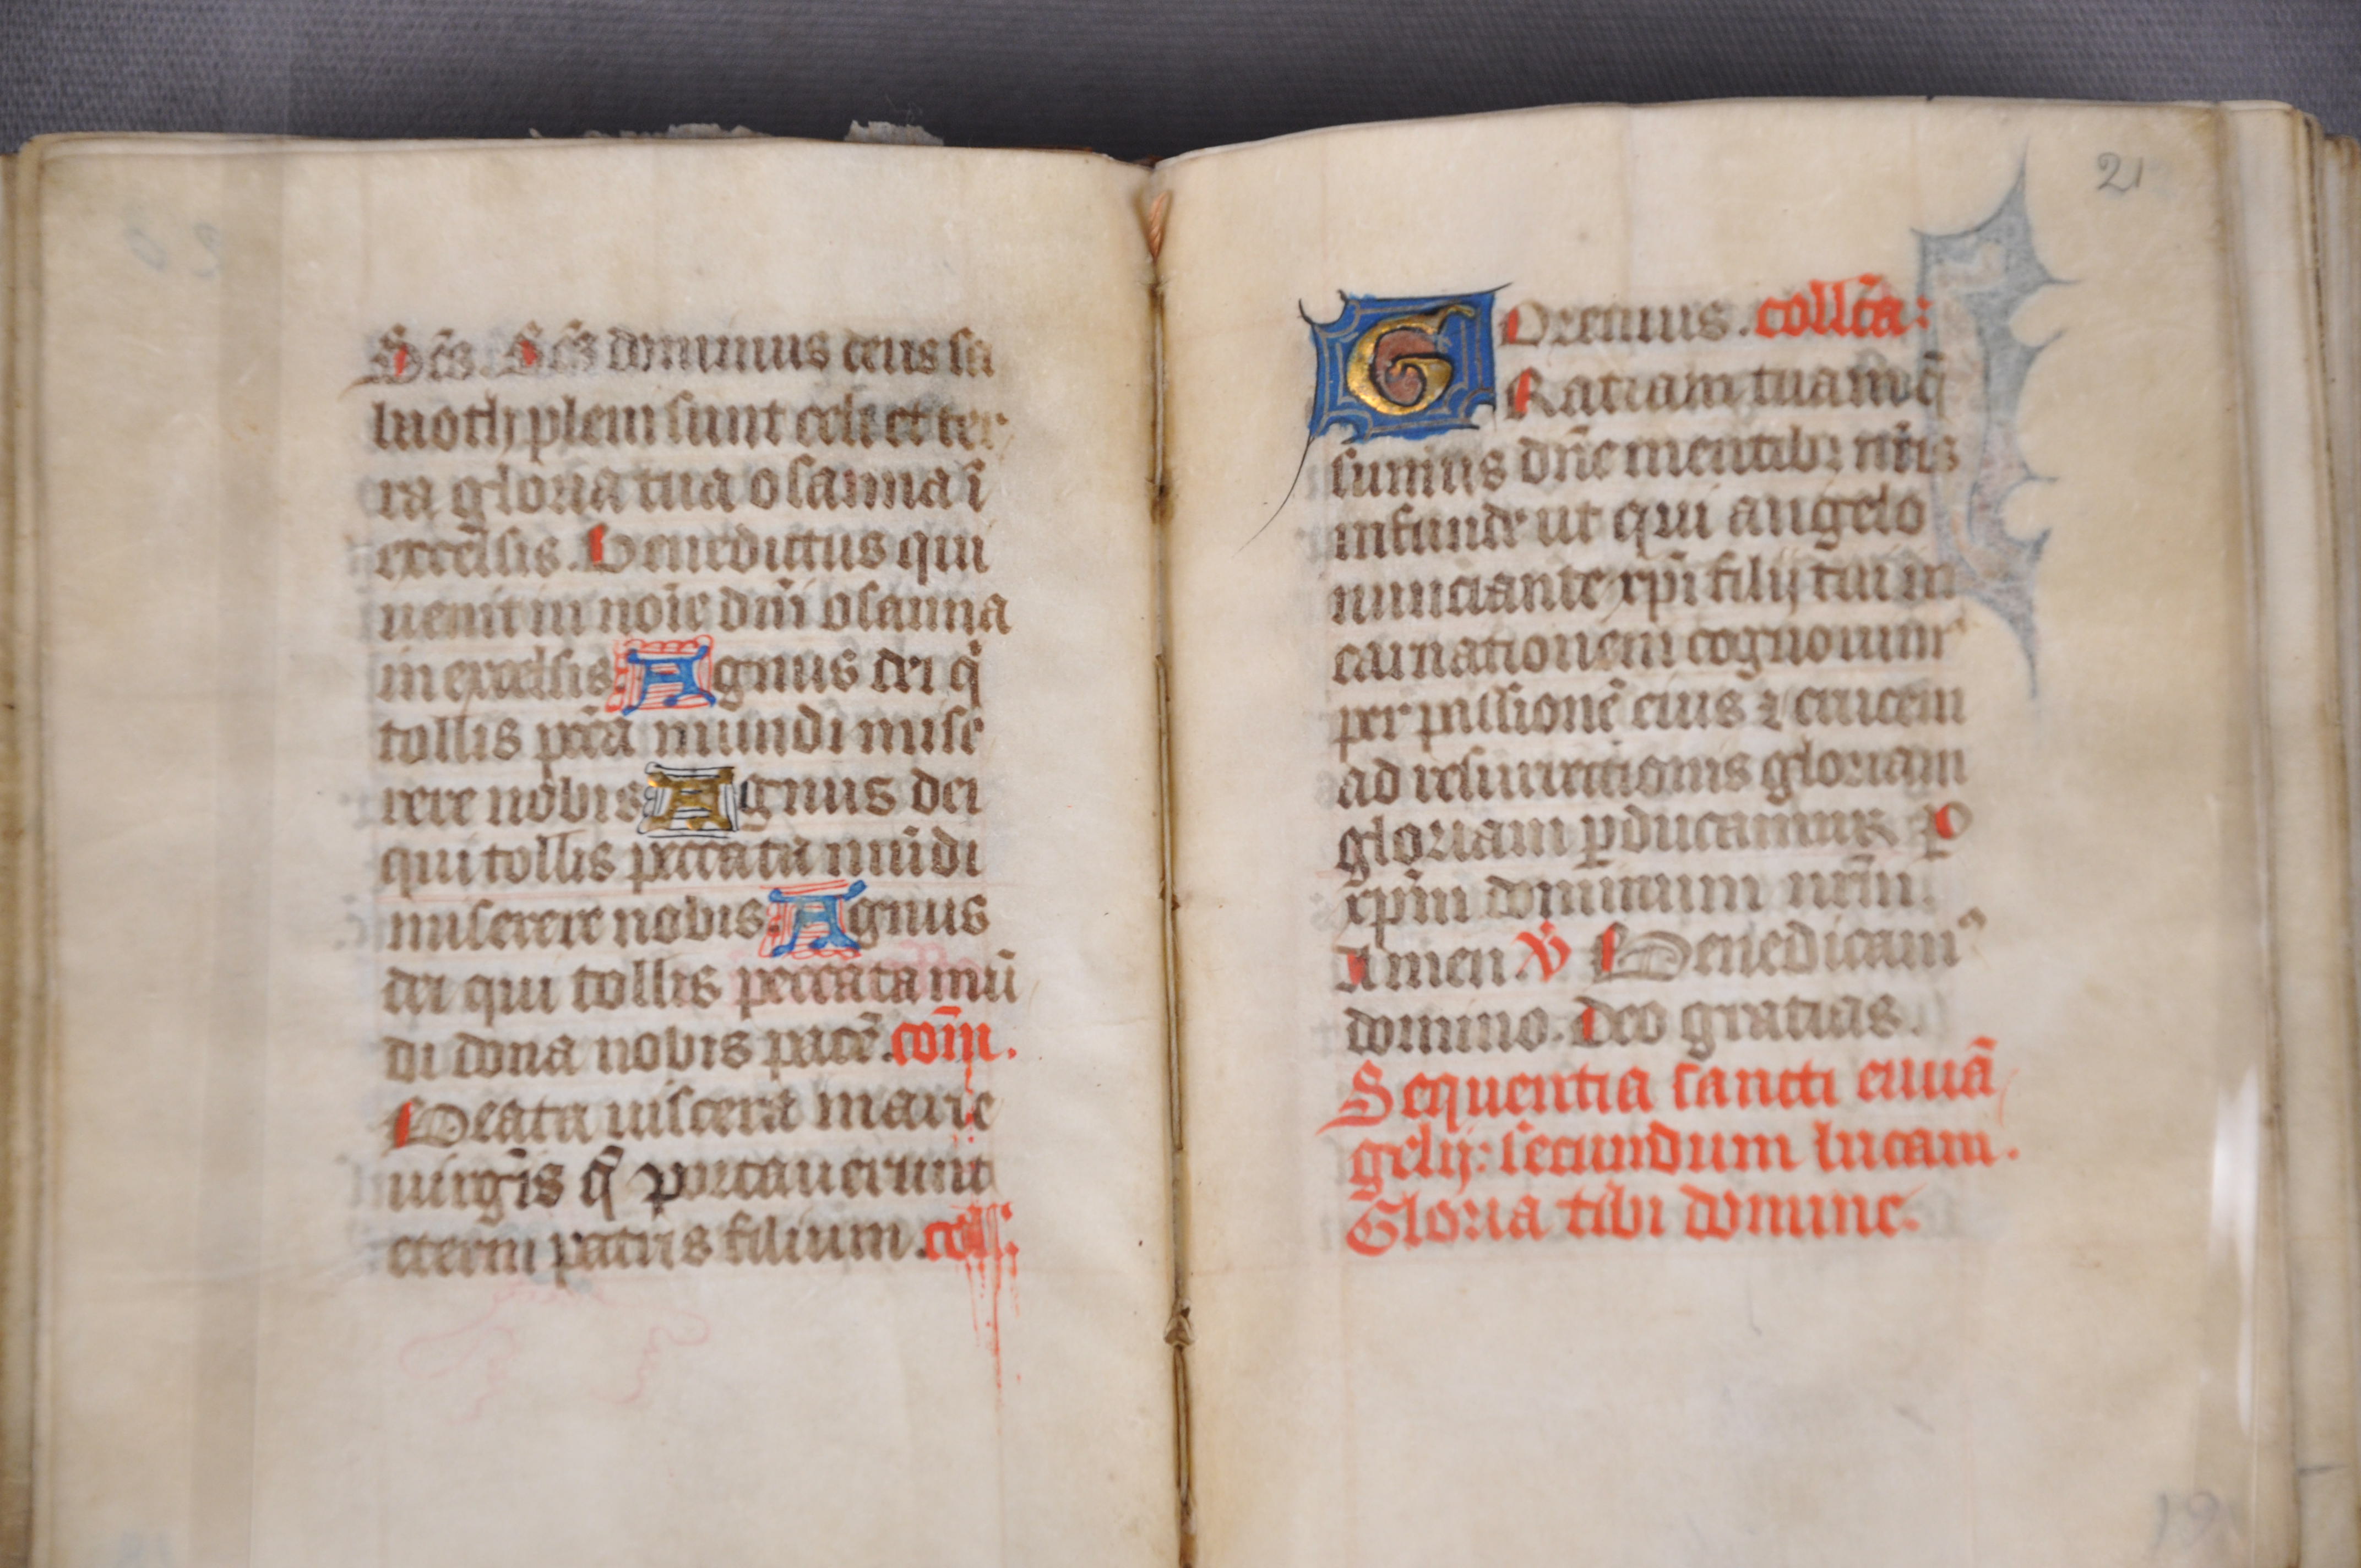 Sc̄s. Sc̄s dominus deus sa
baoth pleni sunt celi et ter
ra gloria tua osanna ī
excelsis. Benedictus qui
uenit in noīe dn̄i osanna
in excelsis. Agnus dei q̇
tollis pccā̄ mundi mise
rere nobis Agnus dei
qui tollis peccata mūdi
miserere nobis. Agnus
dei qui tollis peccata mū
di dona nobis pacē. com̄.
Beata uiscera marie
uirgīs q̄ portauerunt
eterni patris filium. coll.
21
Oremus. collc̄a:
GRatiam tuam q̄
sumus dn̄e mentibꝫ nr̄is
infunde ut qui angelo
nunciante xp̄i filij tui in
carnationem cognouim᷒
per passionē eius ⁊ crucem
ad resurrectionis gloriam
gloriam ꝑducamur P
xp̄m dominum nr̄m.
Amen. ꝟ Benedicam᷒
domino. Deo gratias.
Sequentia sancti euuā
gelij: secundum lucam.
Gloria tibi domine.